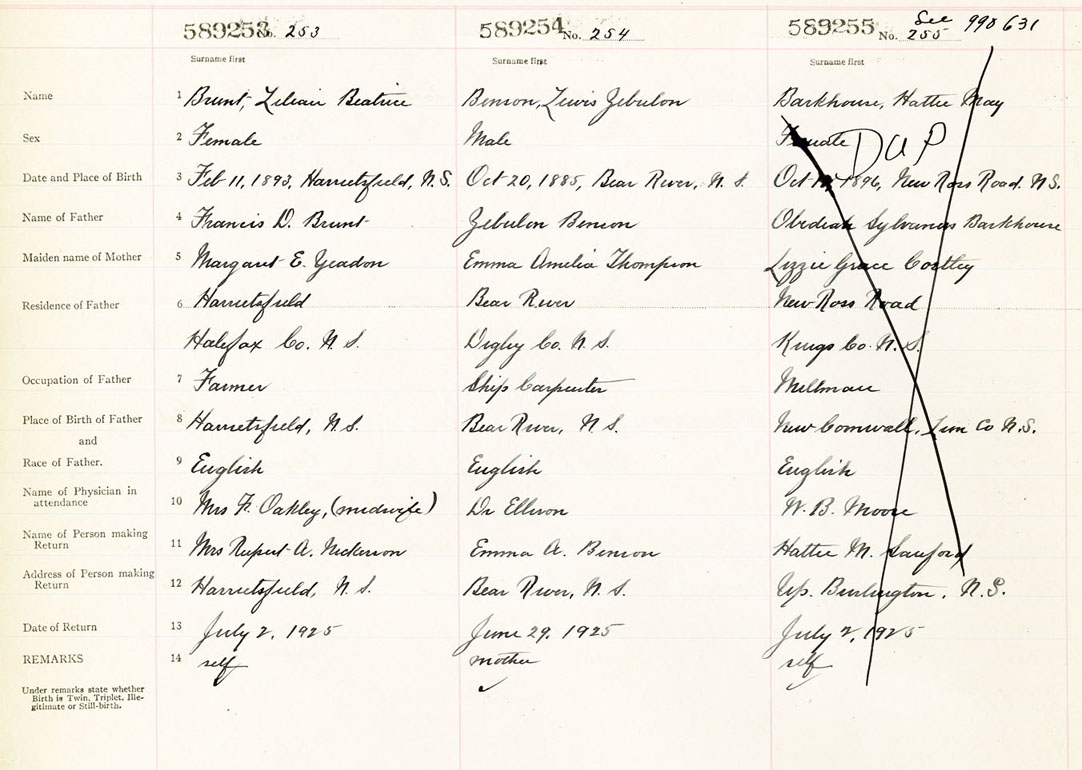 589253 No. 253 589254 No. 254 589255 No. 255 See 990631
Surname first Surname first Surname first
Name 1 Brunt, Lilian Beatrice Benson, Lewis Zebulon Barkhouse, Hattie May
Sex 2 Female Male Female DUP
Date and Place of Birth 3 Feb 11, 1893, Harrietsfield, N.S. Oct 20, 1885, Bear River, N.S. Oct 1896, New Ross Road. N.S.
Name of Father 4 Francis D. Brunt Zebulon Benson Obediah Sylvanus Barkhouse
Maiden name of Mother 5 Margaret E. Yeadon Emma Amelia Thompson Lizzie Grace
Residence of Father 6 Harrietsfield Bear River New Ross Road
Halifax Co. N.S. Digby Co. N.S. Kings Co. N.S.
Occupation of Father 7 Farmer Ship Carpenter Millman
Place of Birth of Father 8 Harrietsfield, N.S. Bear River, N.S. New Cornwall, Lun Co N.S.
and
Race of Father. 9 English English English
Name of Physician in attendance 10 Mrs F. Oakley, (midwife) Dr Ellison W. B. Moore
Name of Person making Return 11 Mrs Rupert A. Nickerson Emma A. Benson Hattie M. Sanford
Address of Person making Return 12 Harrietsfield, N.S. Bear River, N.S. Up. Burlington, N.S.
Date of Return 13 July 2, 1925 June 29, 1925 July 2, 1925
REMARKS 14 self mother self
Under remarks state whether
Birth is Twin, Triplet, Ille-
gitimate or Still-birth.